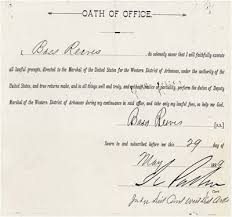 OATH OF OFFICE.
I, Bass Reeves do solemnly swear that I will faithfully execute
all lawful precepts, directed to the Marshal of the United States for the Western District of Arkansas, under the authority of the
United States, and true returns make, and in all things well and truly, and without malice or partiality, perform the duties of Deputy
Marshal of the Western District of Arkansas during my continuance in said office, and take only my lawful fees, so help me God.
Bass Reeves [L.S.]
Sworn to and subscribed before me this 29 day
of May 189
Judge Dist Court West Dist Ark